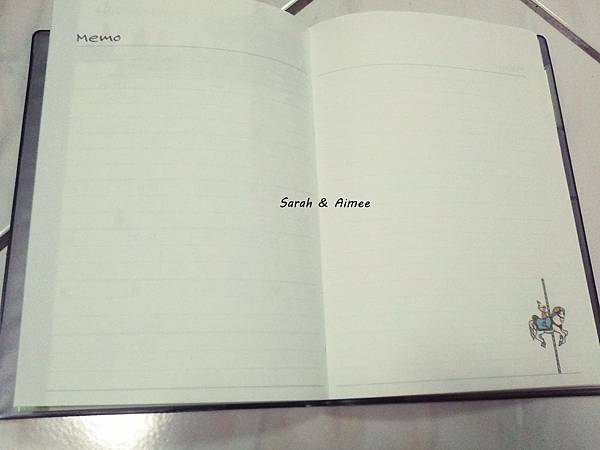 Memo
Sarah & Aimee